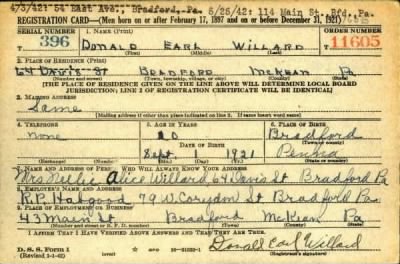 4/3/42: 54 East Ave., Bradford, Pa. 5/25/42: 114 Main St. Bfd., Pa.
REGISTRATION CARD—(Men born on or after February 17, 1897 and on or before December 31, 1921)
SERIAL NUMBER 1. NAME (Print) ORDER NUMBER
396 DONALD EARL WILLARD 11605
2. PLACE OF RESIDENCE (Print)
64 DAVIS ST BRADFORD McKEAN Pa
(Number and street) (Town, township, village, or city) (County) (State)
[THE PLACE OF RESIDENCE GIVEN ON THE LINE ABOVE WILL DETERMINE LOCAL BOARD
JURISDICTION; LINE 2 OF REGISTRATION CERTIFICATE WILL BE IDENTICAL]
3. MAILING ADDRESS
Same
[Mailing address if other than place indicated on line 2. If same insert word same]
4. TELEPHONE 5. AGE IN YEARS 6. PLACE OF BIRTH
none 20 Bradford
DATE OF BIRTH (Town or county)
Sept 1 1921 Penna
(State or country)
7. NAME AND ADDRESS OF PERSON WHO WILL ALWAYS KNOW YOUR ADDRESS
Mrs Nellie Alice Willard 64 Davis St Bradford Pa
8. EMPLOYER'S NAME AND ADDRESS
R.P. Habgood 79 W. Corydon St Bradford Pa
9. PLACE OF EMPLOYMENT OR BUSINESS
43 Main St Bradford McKean Pa
(Number and street or R. F. D. number) (Town) (County) (State)
I AFFIRM THAT I HAVE VERIFIED ABOVE ANSWERS AND THAT THEY ARE TRUE.
D. S. S. Form 1
(Revised 1-1-42) Donald Earl Willard
(Registrant's signature)